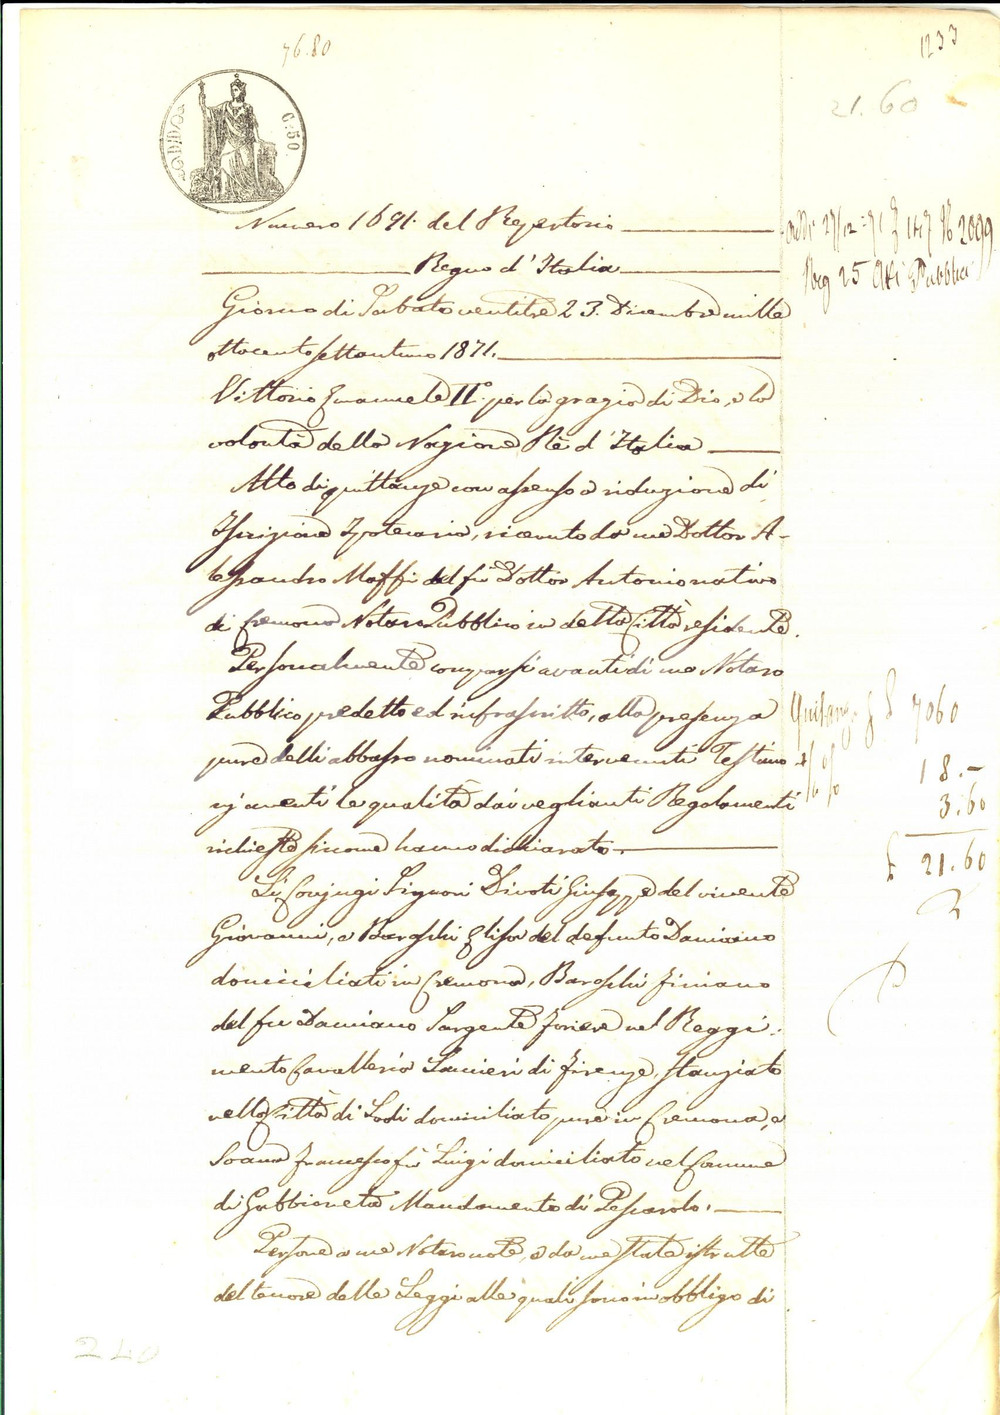 76.80
1233
21.60
C. 50
Numero 1691. del Repertorio
Regno d'Italia
addi 27/12 71 N 2099
Reg 25 Atti Pubblici
Giorno di Sabato ventitre 23. Dicembre mille
ottocento settantuno 1871.
Vittorio Emanuele II.° per la grazia di Dio, e la
volontà della Nazione Rè d'Italia
Atto di quittanza con assenso a riduzione di
Iscrizione Ipotecaria, ricevuto da me Dottor A-
lessandro Maffi del fù Dottor Antonio nativo
di Cremona Notaro Pubblico in detta Città residente.
Personalmente comparsi avanti di me Notaro
Pubblico predetto ed infrascritto, alla presenza
pure delli abbasso nominati intervenuti Testimo-
nj aventi le qualità dai veglianti Regolamenti
richieste siccome hanno dichiarato.
Quitanza £ 7060
18.-
3.60
£ 21.60
Li Conjugi Signori Divoti Giuseppe del vivente
Giovanni, e Baroschi Elisa del defunto Damiano
domiciliati in Cremona, Baroschi Firmano
del fu Damiano Sargente Foriere nel Reggi-
mento Cavalleria Lancieri di Firenze, stanziato
nella Città di Lodi domiciliato pure in Cremona, e
Soana Francesco fù Luigi domiciliato nel Comune
di Gabbioneta Mandamento di Pescarolo.
Persone a me Notaro note, e da me state istrutte
del tenore delle Leggi alle quali sono in obbligo di
240